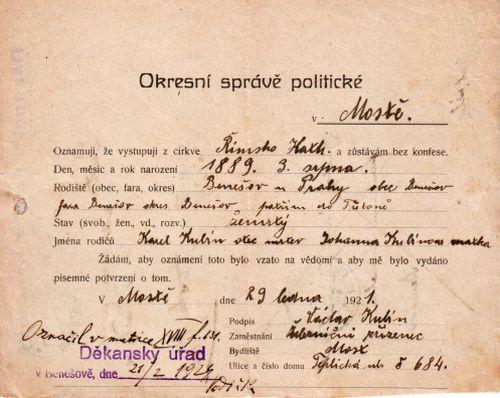 Okresní správě politické
v Mostě.
Oznamuji, že vystupuji z církve Římsko Kath. a zůstávám bez konfese.
Den, měsíc a rok narození 1889. 3. srpna.
Rodiště (obec, fara, okres) Benešov u Prahy obec Benešov
fara Benešov okres Benešov
Stav (svob., žen., vd., rozv.) ženatý
Jména rodičů Karel Kulín otec Johanna Kulínova matka
Žádám, aby oznámení toto bylo vzato na vědomí a aby mě bylo vydáno
písemné potvrzení o tom.
V Mostě dne 29 ledna 1921.
Podpis Václav Kulín
Označil v matrice XVIII f. 131. Zaměstnání železniční zřízenec
Děkanský úřad Bydliště Most
v Benešově, dne 21/2 Ulice a číslo domu Teplická ul. č 684.